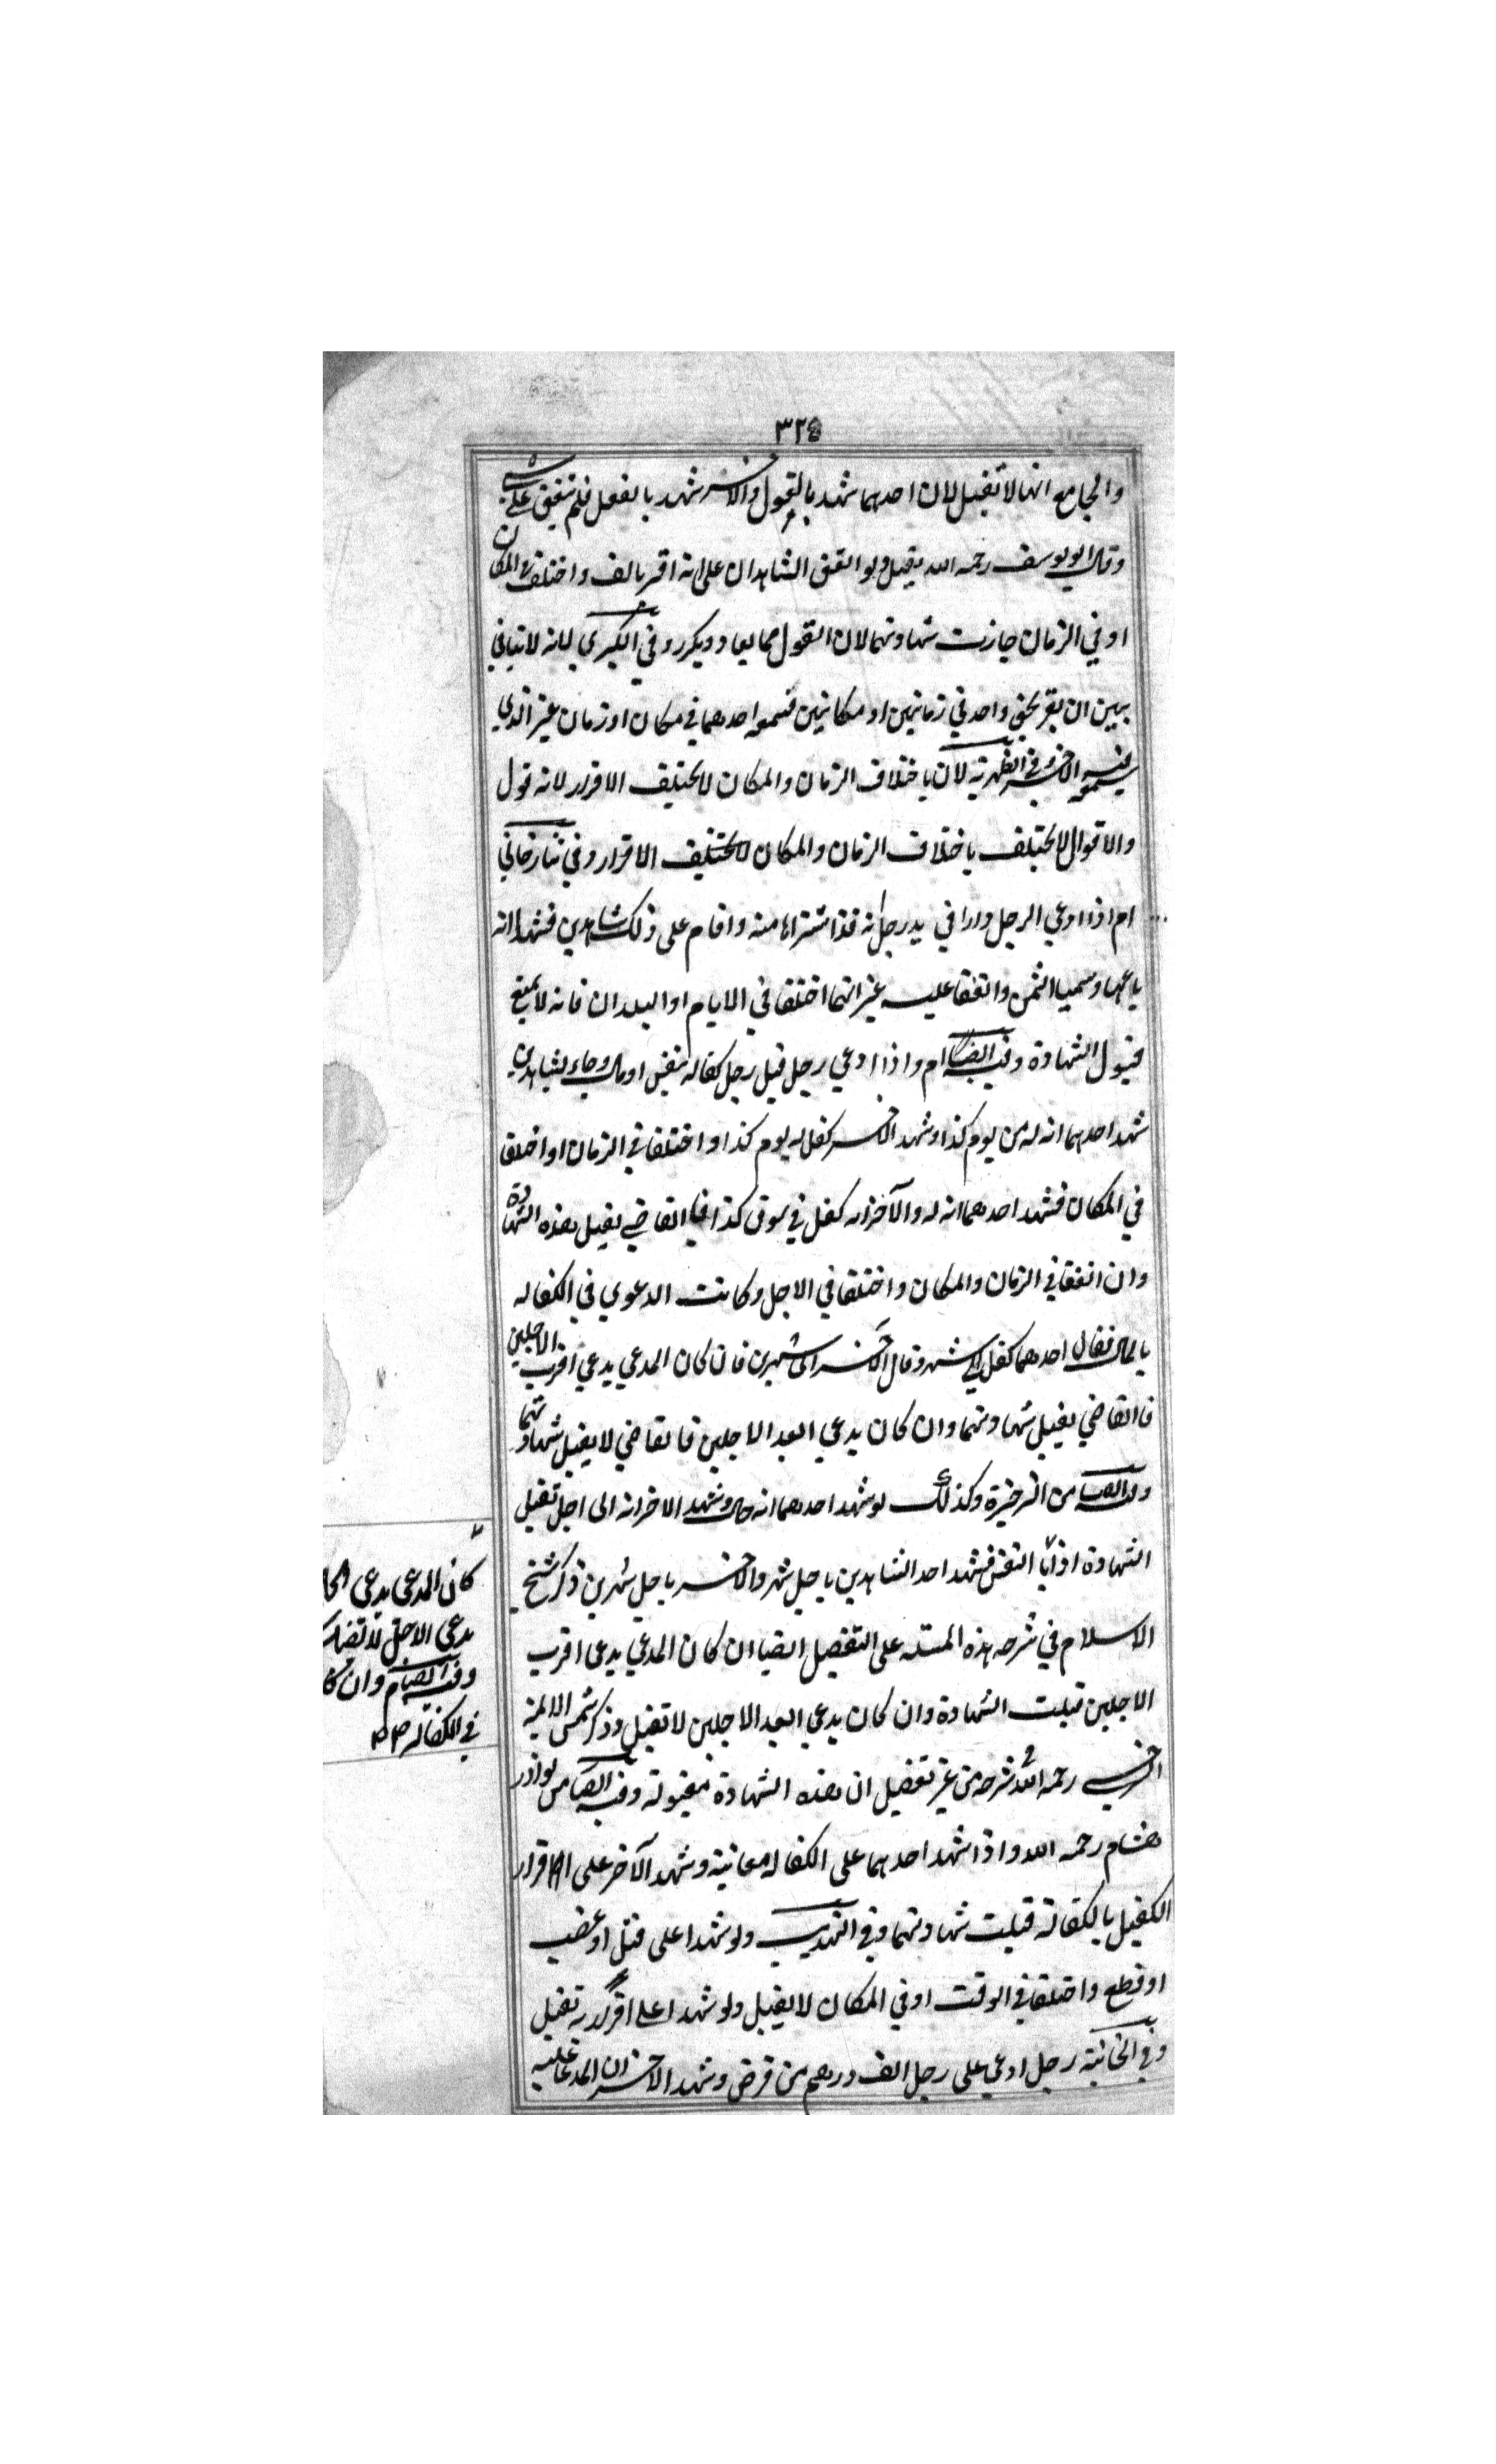 ٣٢٤
والجامع انها لا تقبل لان احدهما شهد بالقول والاخر شهد بالفعل فلم يتفق على شيء
وقال ابو يوسف رحمه الله يقبل ولو اتفق الشاهدان على انه اقر بالف واختلفا في المكان
او في الزمان جازت شهادتهما لان القول مما يعاد ويكرر وفي الكبري لانه لا تنافي
بين ان يقر بحق واحد في زمانين او مكانين فسمعه احدهما في مكان او زمان غير الذي
يسمعه فيه الاخر وفي الظهرية لان باختلاف الزمان والمكان لا يختلف الاقرار لانه قول
والاقوال لا يختلف باختلاف الزمان والمكان لا يختلف الاقرار وفي تتارخاني
ام اذا ادعي الرجل دارا في يد رجل انه قد اشتراها منه واقام على ذلك شاهدين فشهدا انه
باعها وسميا الثمن واتفقا عليه غير انهما اختلفا في الايام او البلدان فانه لا يمنع
قبول الشهادة وفيه ايضا ام واذا ادعي رجل قبل رجل كفاله بنفس او مال وجاء بشاهدين
شهد احدهما انه له من يوم كذا وشهد الاخر كفل له يوم كذا واختلفا في الزمان او اختلفا
في المكان فشهد احدهما انه له والآخر انه كفل في سوق كذا فالقاضي يقبل هذه الشهادة
وان اتفقا في الزمان والمكان واختلفا في الاجل وكانت الدعوي في الكفاله
بالمال فقال احدهما كفل الي شهر وقال الاخر الى شهرين فان كان المدعي يدعي اقرب الاجلين
فالقاضي يقبل شهادتهما وان كان يدعي ابعد الاجلين فالقاضي لا يقبل شهادتهما
وفيه ايضا من الذخيرة وكذلك لو شهد احدهما انه حال وشهد الاخر انه الى اجل تقبل
الشهادة اذا اتفق فشهد احد الشاهدين باجل شهر والاخر باجل شهرين ذكر شيخ
الاسلام في شرحه هذه المسئله على التفصيل ايضا ان كان المدعي يدعى اقرب
الاجلين قبلت الشهادة وان كان يدعي ابعد الاجلين لا تقبل وذكر شمس الائمة
السرخسي رحمه الله في شرحه من غير تفصيل ان هذه الشهادة مقبولة وفيه ايضا من نوادر
هشام رحمه الله واذا شهد احدهما على الكفاله معاينة وشهد الآخر على اقرار
الكفيل بالكفالة قبلت شهادتهما وفي التهذيب ولو شهدا على قتل او غصب
او قطع واختلفا في الوقت او في المكان لا يقبل ولو شهدا على اقراره تقبل
وفي الخانية رجل ادعي على رجل الف درهم من قرض وشهد الاخر ان المدعا عليه
كان المدعى يدعى
يدعى الاجل لا
وفيه ايضا م وان كا
في الكفاله